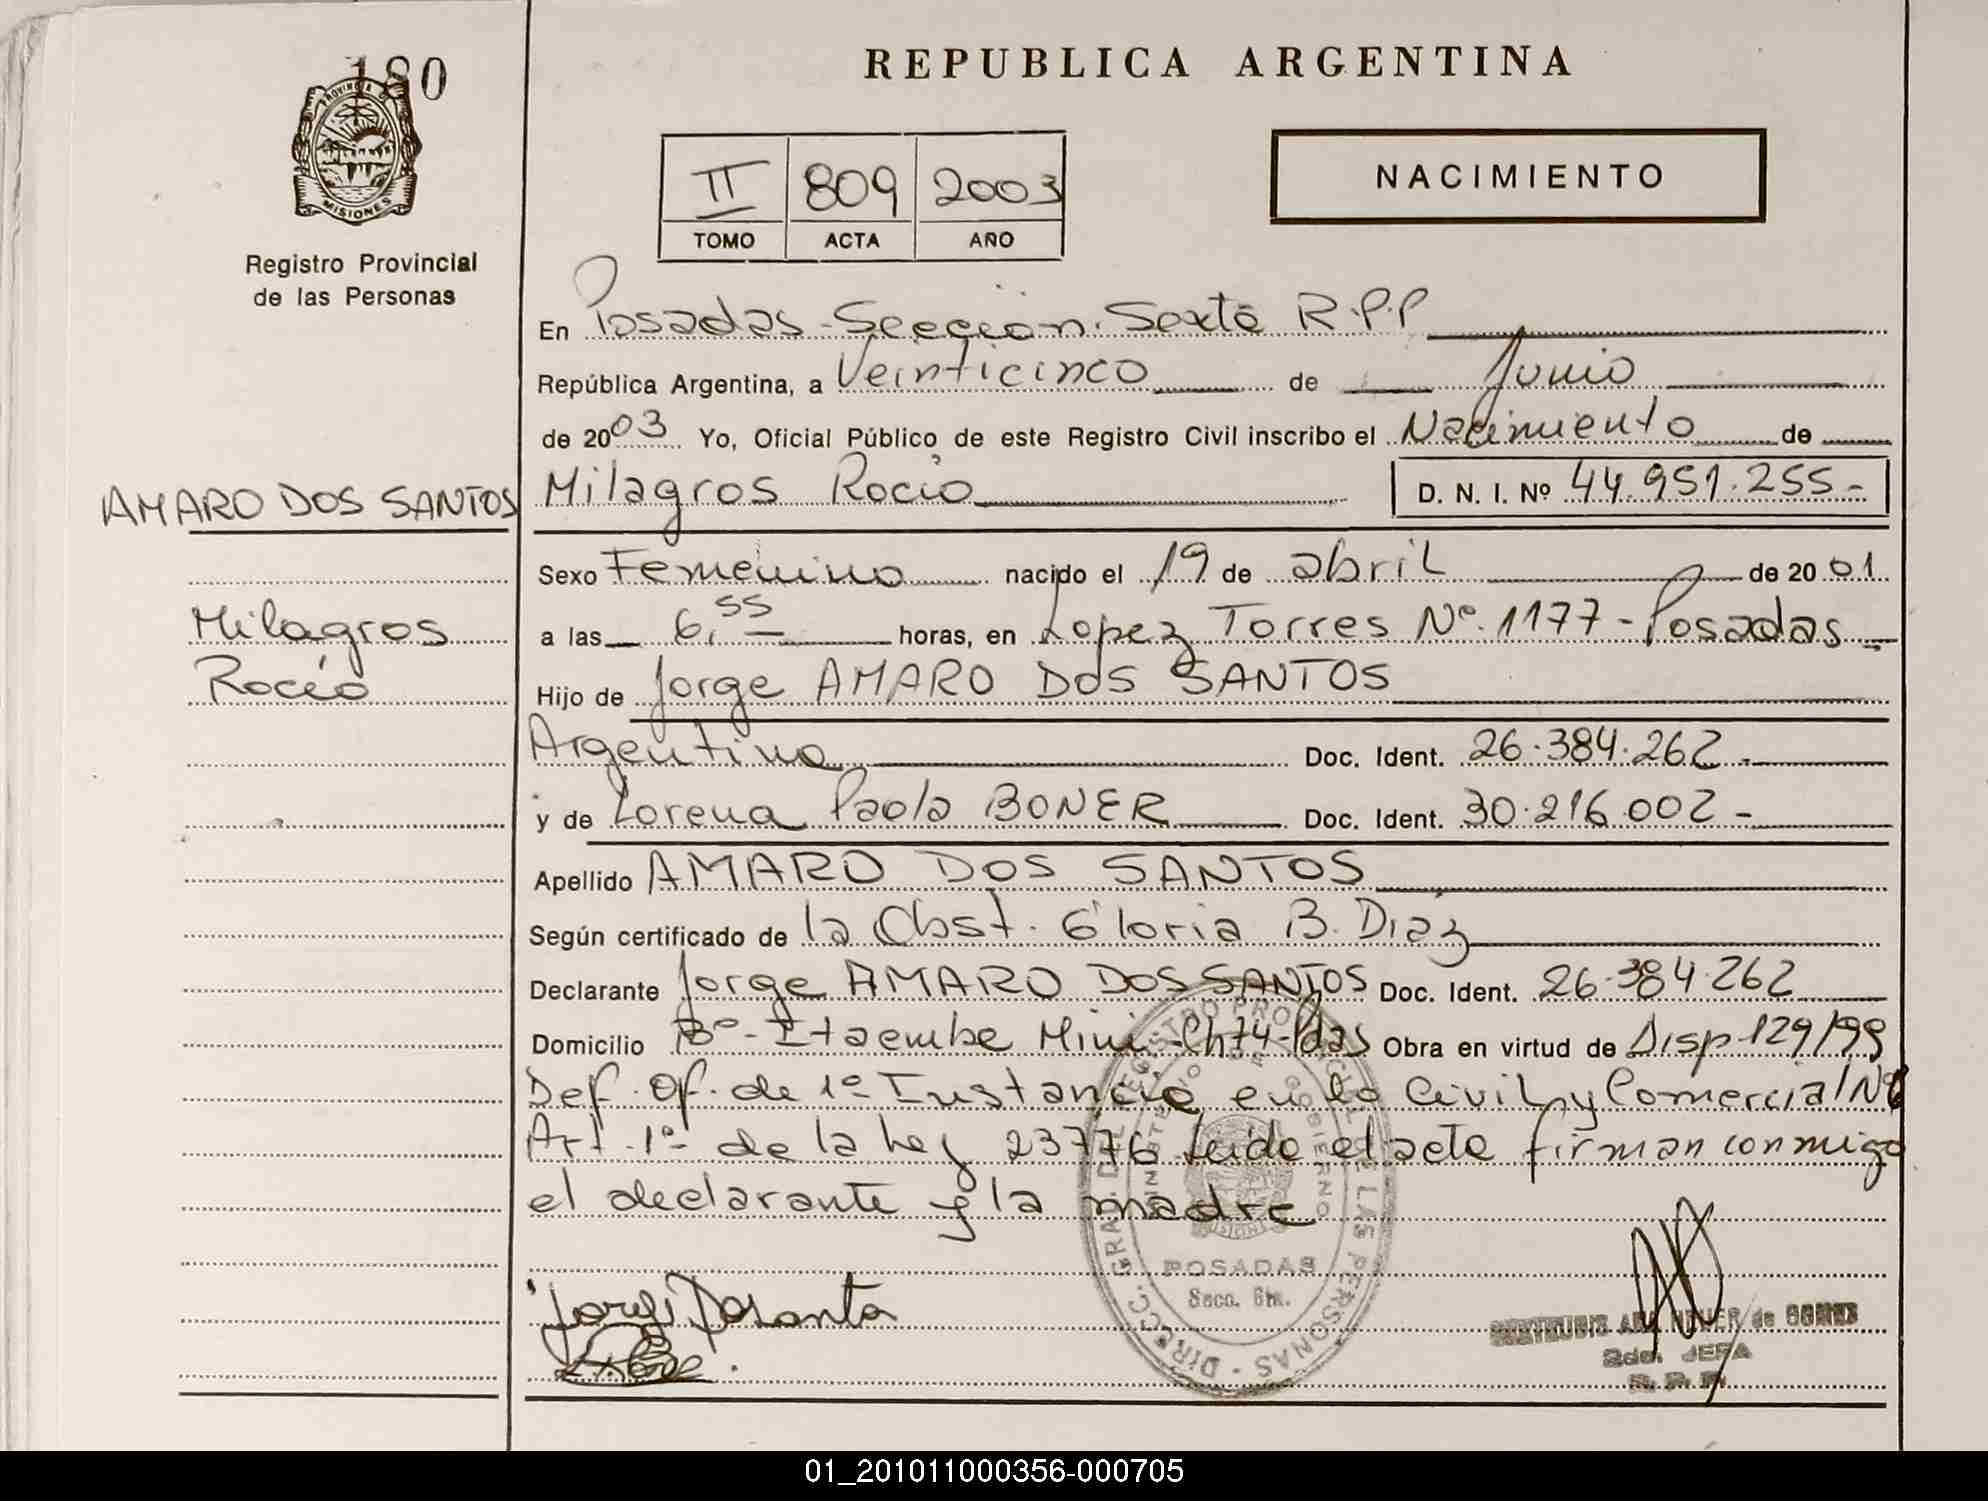 180
REPUBLICA ARGENTINA
PROVINCIA DE MISIONES
Registro Provincial
de las Personas
II 809 2003
TOMO ACTA AÑO
NACIMIENTO
En Posadas - Sección Sexta R.P.P
República Argentina, a Veinticinco de Junio
de 2003 Yo, Oficial Público de este Registro Civil inscribo el Nacimiento de
AMARO DOS SANTOS Milagros Rocío D. N. I. Nº 44.951.255-
Sexo Femenino nacido el 19 de abril de 2001
Milagros
Rocío
a las 6,55 horas, en Lopez Torres Nº 1177 - Posadas
Hijo de Jorge AMARO DOS SANTOS
Argentino Doc. Ident. 26.384.262-
y de Lorena Paola BONER Doc. Ident. 30.216.002-
Apellido AMARO DOS SANTOS
Según certificado de la Obst. Gloria B. Diaz
Declarante Jorge AMARO DOS SANTOS Doc. Ident. 26.384.262
Domicilio Bº - Itaembe Mini - Ch74-Pdas Obra en virtud de Disp 129/99
Def. Of. de 1º Instancia en lo Civil y Comercial Nº
Art. 1º de la Ley 23776 Leida el acta firman conmigo
el declarante y la madre
DIRECC. GRAL. DEL REGISTRO PROVINCIAL DE LAS PERSONAS
MINISTERIO DE GOBIERNO
POSADAS
Secc. 6ta.
2da. JEFA
R. P. P.
01_201011000356-000705